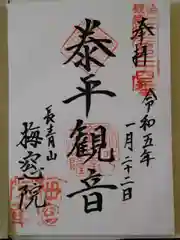 奉拝
令和五年
一月二十二日
泰平観音
長青山
梅窓院